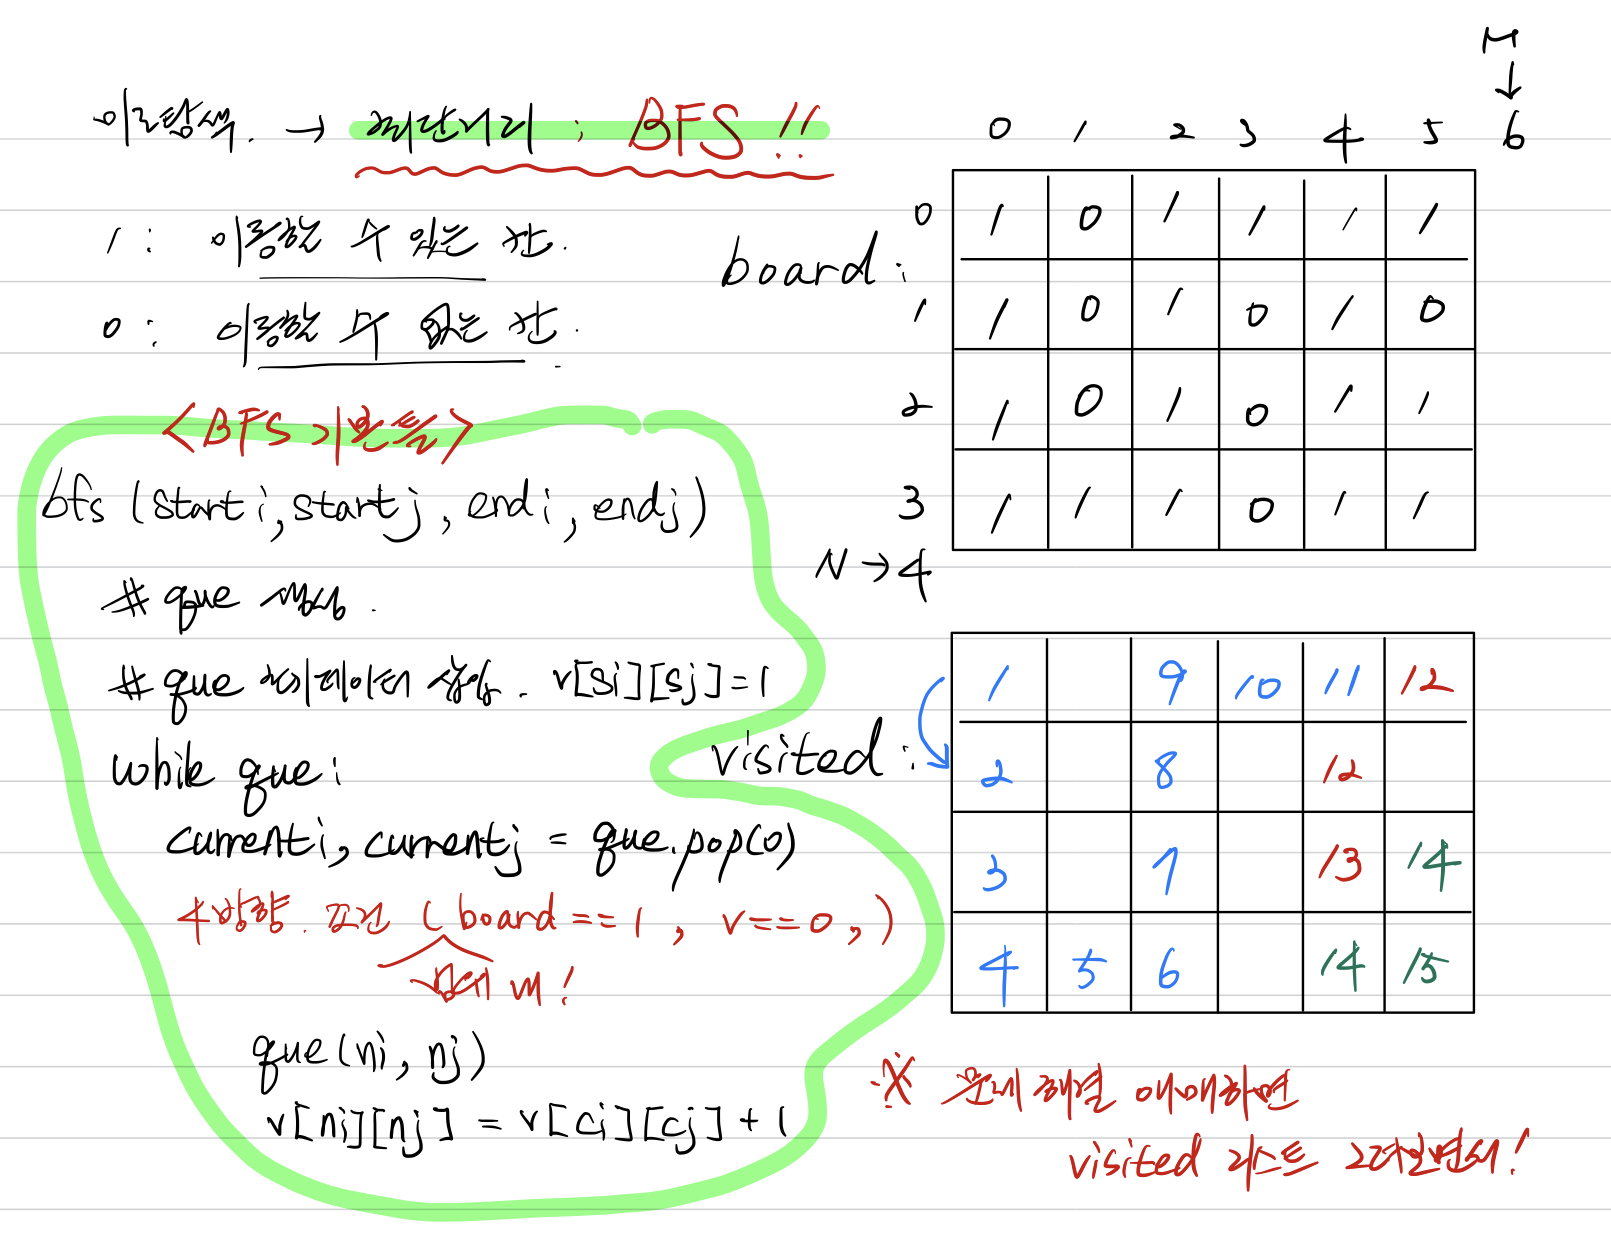 미로탐색. → 최단거리 : BFS !!
1 : 이동할 수 있는 칸.
0 : 이동할 수 없는 칸.
<BFS 기본틀>
bfs (start i, start j, end i, end j)
# que 생성.
# que 초기데이터 삽입. v[si][sj]=1
while que :
currenti, currentj = que.pop(0)
4방향. 조건 ( board == 1, v==0, )
범위 내!
que(ni, nj)
v[ni][nj] = v[ci][cj] + 1
M
↓
0 1 2 3 4 5 6
board :
0 1 0 1 1 1 1
1 1 0 1 0 1 0
2 1 0 1 0 1 1
3 1 1 1 0 1 1
N → 4
visited :
1 9 10 11 12
2 8 12
3 7 13 14
4 5 6 14 15
※ 문제 해결 애매하면
visited 리스트 그려보면서!